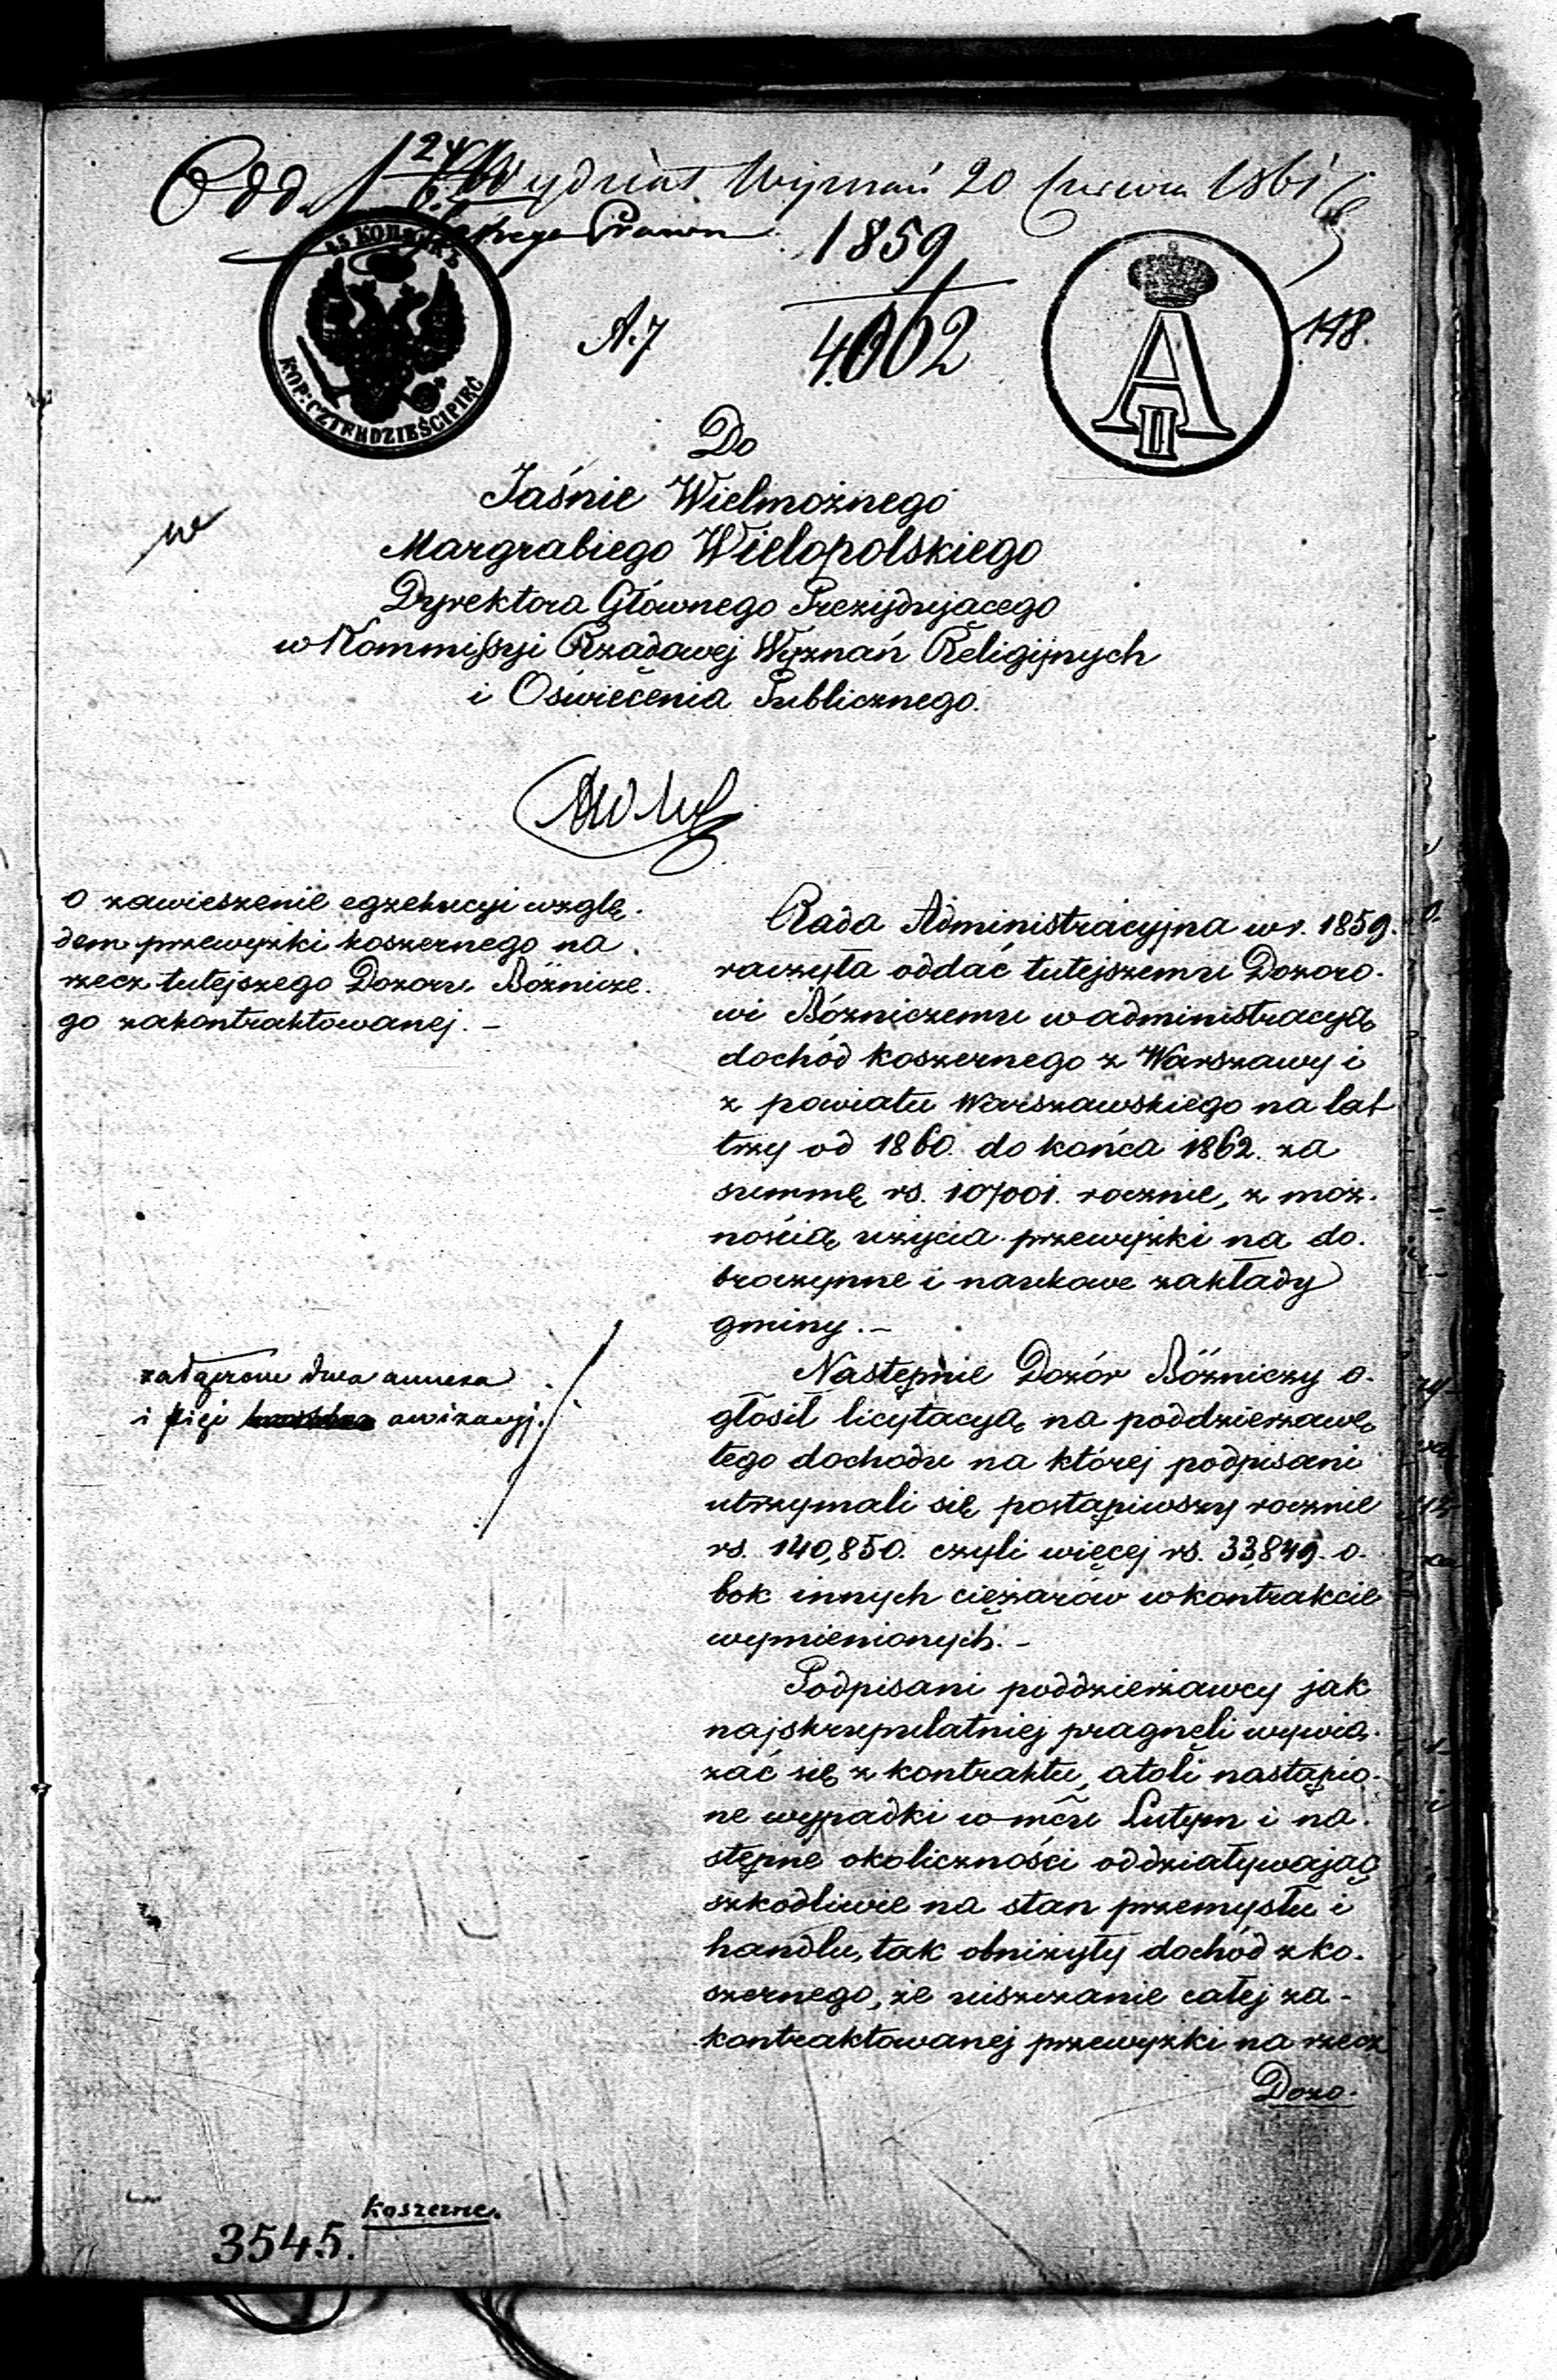 Odd. 1 Wydział Wyznań 20 Czerwca 1861
1859
4062
A.7
148.
45 КОПѢЕКЪ
KOP: CZTERDZIEŚCI PIĘĆ
A II
Do
Jaśnie Wielmożnego
Margrabiego Wielopolskiego
Dyrektora Głównego Prezydującego
w Kommissyi Rządowej Wyznań Religijnych
i Oświecenia Publicznego.
O zawieszenie egzekucyi wzglę-
dem przewyżki koszernego na
rzecz tutejszego Dozoru Bóżnicze-
go zakontraktowanej. –
Rada Administracyjna w r. 1859.
raczyła oddać tutejszemu Dozoro-
wi Bóżniczemu w administracyą
dochód koszernego z Warszawy i
z powiatu Warszawskiego na lat
trzy od 1860. do końca 1862. za
summę rs. 107001. rocznie, z moż-
nością użycia przewyżki na do-
broczynne i naukowe zakłady
gminy. –
załączone dwa annexa
i pięć awizacyj.
Następnie Dozór Bóżniczy o-
głosił licytacyą na poddzierżawę
tego dochodu na której podpisani
utrzymali się postąpiwszy rocznie
rs. 140,850. czyli więcej rs. 33,849. o-
bok innych ciężarów w kontrakcie
wymienionych. –
Podpisani poddzierżawcy jak
najskrupulatniej pragnęli wywią-
zać się z kontraktu, atoli nastąpio-
ne wypadki w mcu Lutym i na-
stępne okoliczności oddziaływając
szkodliwie na stan przemysłu i
handlu, tak obniżyły dochód z ko-
szernego, że uiszczanie całej za-
kontraktowanej przewyżki na rzecz
Dozo-
koszerne.
3545.